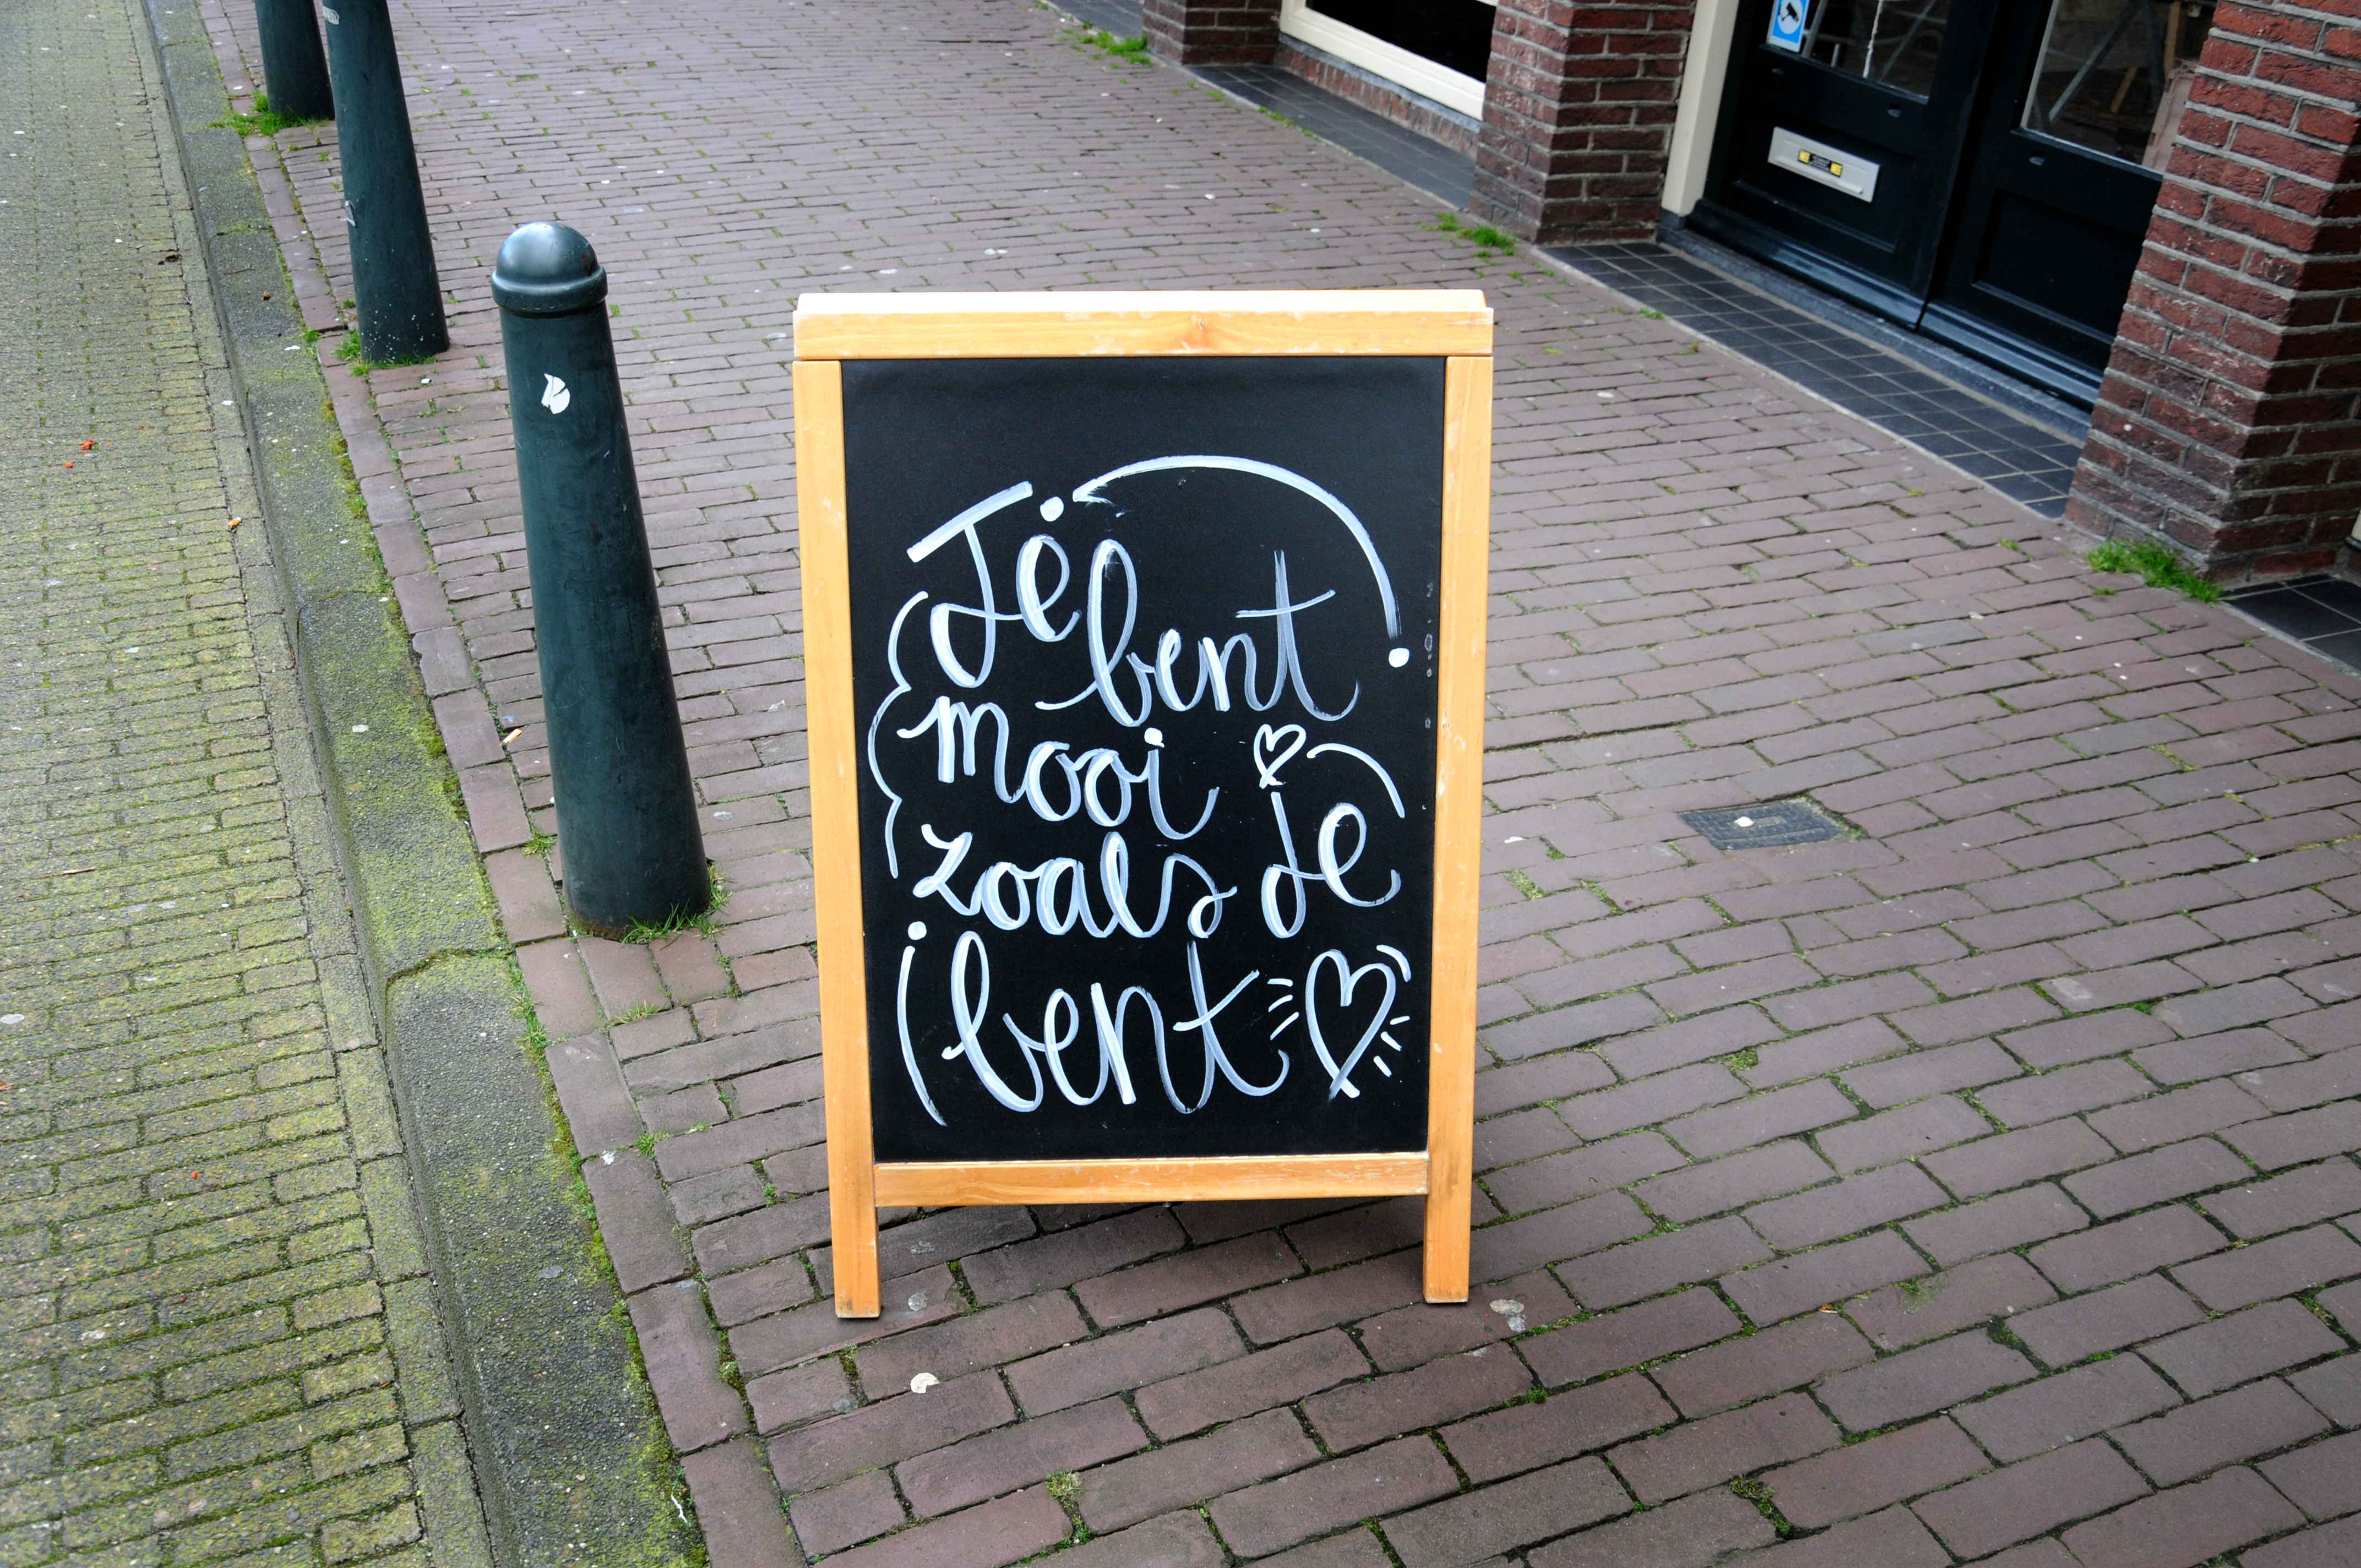 Je
bent
mooi
zoals je
bent